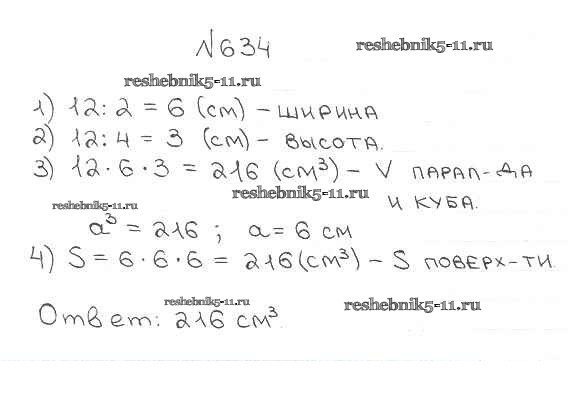 №634
reshebnik5-11.ru
reshebnik5-11.ru
1) 12:2 = 6 (см) – ширина
2) 12:4 = 3 (см) – высота.
3) 12·6·3 = 216 (см³) – V парал-да
reshebnik5-11.ru
и куба.
reshebnik5-11.ru
a³ = 216 ; a = 6 см
4) S = 6·6·6 = 216 (см³) – S поверх-ти.
reshebnik5-11.ru
reshebnik5-11.ru
Ответ: 216 см³.